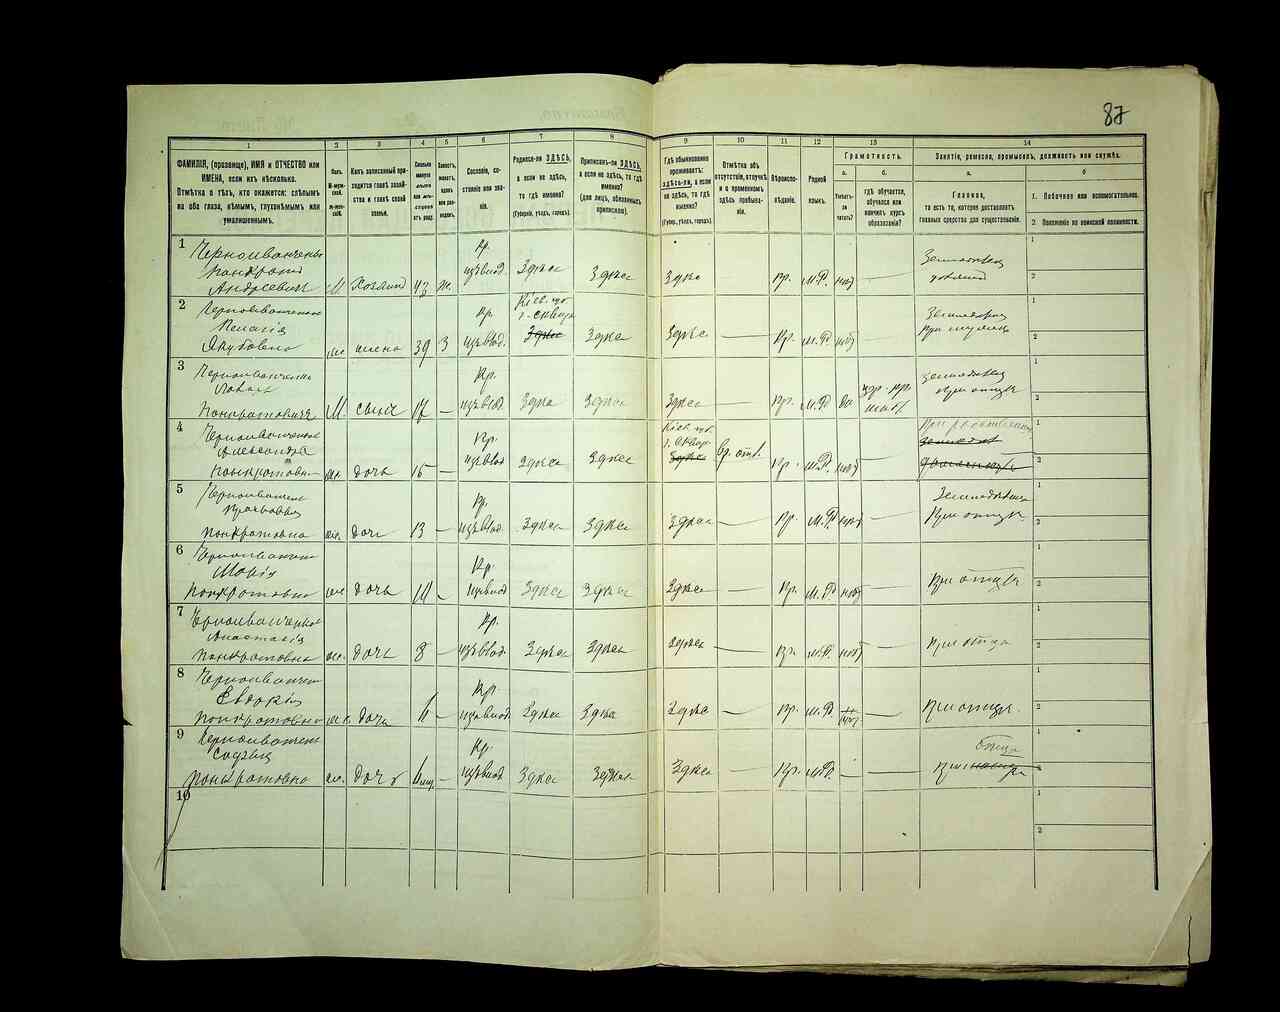 87
1 2 3 4 5 6 7 8 9 10 11 12 13 14
ФАМИЛІЯ, (прозвище), ИМЯ и ОТЧЕСТВО или
ИМЕНА, если ихъ нѣсколько.
Отмѣтка о тѣхъ, кто окажется: слѣпымъ
на оба глаза, нѣмымъ, глухонѣмымъ или
умалишеннымъ.
Полъ.
М-муж-
ской.
Ж-жен-
скій.
Какъ записанный при-
ходится главѣ хозяй-
ства и главѣ своей
семьи.
Сколько
минуло
лѣтъ
или мѣ-
сяцевъ
отъ роду.
Холостъ,
женатъ,
вдовъ
или раз-
веденъ.
Сословіе, со-
стояніе или зва-
ніе.
Родился-ли ЗДѢСЬ,
а если не здѣсь,
то гдѣ именно?
(Губернія, уѣздъ, городъ).
Приписанъ-ли ЗДѢСЬ,
а если не здѣсь, то гдѣ
именно?
(для лицъ, обязанныхъ
припискою).
Гдѣ обыкновенно
проживаетъ:
здѣсь-ли, а если
не здѣсь, то гдѣ
именно?
(Губер., уѣздъ, городъ).
Отмѣтка объ
отсутствіи, отлучкѣ
и о временномъ
здѣсь пребыва-
ніи.
Вѣроиспо-
вѣданіе.
Родной
языкъ.
Грамотность.
а. б.
Умѣетъ-
ли
читать?
гдѣ обучается,
обучался или
кончилъ курсъ
образованія?
Занятіе, ремесло, промыселъ, должность или служба.
а. б
Главное,
то есть то, которое доставляетъ
главныя средства для существованія.
1. Побочное или вспомогательное.
2 Положеніе по воинской повинности.
1 Черноиванченко
Панкратій
Андреевичъ М Хозяинъ 43 ж. Кр. изъ влад. Здѣсь Здѣсь Здѣсь — пр. м.Р. нѣт — Земледѣлецъ
2 Черноиванченко
Пелагія
Якубовна ж жена 39 з Кр. изъ влад. Кіев. губ. г. Сквира Здѣсь Здѣсь Здѣсь — пр. м.Р. нѣт — Земледѣлецъ при мужѣ
3 Черноиванченко
Панкратовичъ М сынъ 17 — Кр. изъ влад. Здѣсь Здѣсь Здѣсь — пр. м.Р. да земледѣлецъ при отцѣ
4 Черноиванченко
Александра
Панкратовна ж дочь 15 — Кр. изъ влад Здѣсь Здѣсь Кіев. губ. г. Сквира Здѣсь вр. отл. пр. м.Р. нѣт —
5 Черноиванченко
Панкратовна ж. дочь 13 — Кр. изъ влад. Здѣсь Здѣсь Здѣсь — пр. м.Р. нѣт — Земледѣлецъ при отцѣ
6 Черноиванченко
Марія
Панкратовна ж дочь — Кр. изъ влад Здѣсь Здѣсь Здѣсь — пр. м.Р. нѣт — при отцѣ
7 Черноиванченко
Анастасія
Панкратовна ж. дочь 8 — Кр. изъ влад. Здѣсь Здѣсь Здѣсь — пр. м.Р. нѣт — при отцѣ
8 Черноиванченко
Евдокія
Панкратовна ж дочь — Кр. изъ влад Здѣсь Здѣсь Здѣсь — пр. м.Р. нѣт — при отцѣ
9 Черноиванченко
Панкратовна ж. дочь — Кр. изъ влад Здѣсь Здѣсь Здѣсь — пр. м.Р. — — при отцѣ
10